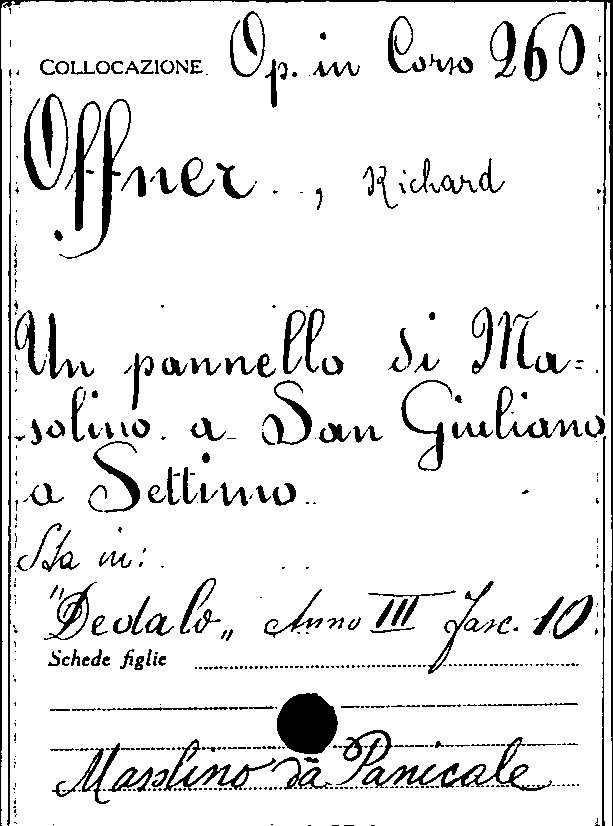 COLLOCAZIONE Op. in Corso 260
Offner, Richard
Un pannello di Ma=
solino a San Giuliano
a Settimo
Sta in:
"Dedalo„ Anno III Fasc. 10
Schede figlie
Masolino da Panicale